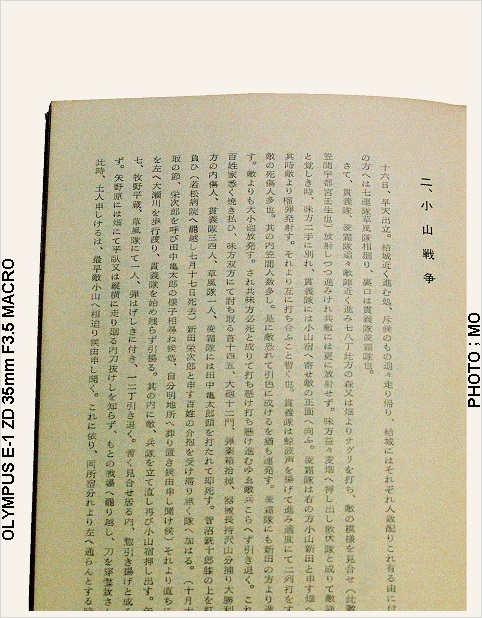 二、小山戦争
十六日、早天出立。結城近く進む処、斥候のもの追々走り帰り、結城にはそれぞれ人数配りこれ有る由に付
の方へは七連隊草風隊相廻り、裏口は貫義隊凌霜隊也。
さて、貫義隊、凌霜隊追々敵陣近く進み七八丁此方の森又は畑よりサグリを打ち、敵の模様を見合せ（此敵
笠間宇都宮壬生也）放射しつつ進みけれ共敵には更に放射せず。味方益々麦畑へ押し出し散伏隊と成りて敵陣
と覚しき時、味方二手に別れ、貫義隊には小山宿へ寄せ敵の正面へ向ふ。凌霜隊は右の方小山新田と申す畑へ
其時敵より榴弾発射す。それより互に打ち合ふこと暫く也。貫義隊は鯨波声を揚げて進み適度にて二列打す
敵の死傷人多也。其の内笠間人数多し。是に敵恐れて引色に成けるを猶も連発す。凌霜隊にも新田の方より進
す。敵よりも大小砲放発す。され共味方必死と成りて打ち懸け打ち懸け進むゆゑ敵兵こらへず引き退く。これ
百姓家悉く焼き払ひ、味方双方にて討ち取る首十四五、大砲十二門、弾薬箱拾掉、器械長持沢山分捕り大勝利
方の内傷人、貫義隊三四人、草風隊一人、凌霜隊には田中亀太郎頭を打たれて即死す。菅沼銑十郎膝の上を打
負ひ（若松病院へ罷越し七月十七日死去）新田栄次郎と申す百姓の介抱を受け滞り無く隊へ加はる。（十月十
取の節、栄次郎を呼び田中亀太郎の様子相尋ね候処、自分明地所へ葬り置き候由申し聞け候）それより直ちに
を左へ大瀬川を歩行渡り、貫義隊を始め残らず引揚る。其の内に敵、兵隊を立て直し再び小山宿押し出す。矢
七、牧野平蔵、草風隊にて一人、弾はげしきに付き、一二丁引き退く。暫く見合せ居る内、惣引き揚げと成る
ず。矢野原には畑にて平臥又は縦横に走り廻る内刀抜けしを知らず、もとの戦場へ罷り越し、刀を穿鑿致さし
此時、土人申しけるは、最早敵小山へ相迫り候由申し聞く。これに依り、同所宿分れより左へ通らんとする時
OLYMPUS E-1 ZD 35mm F3.5 MACRO
PHOTO ; MO